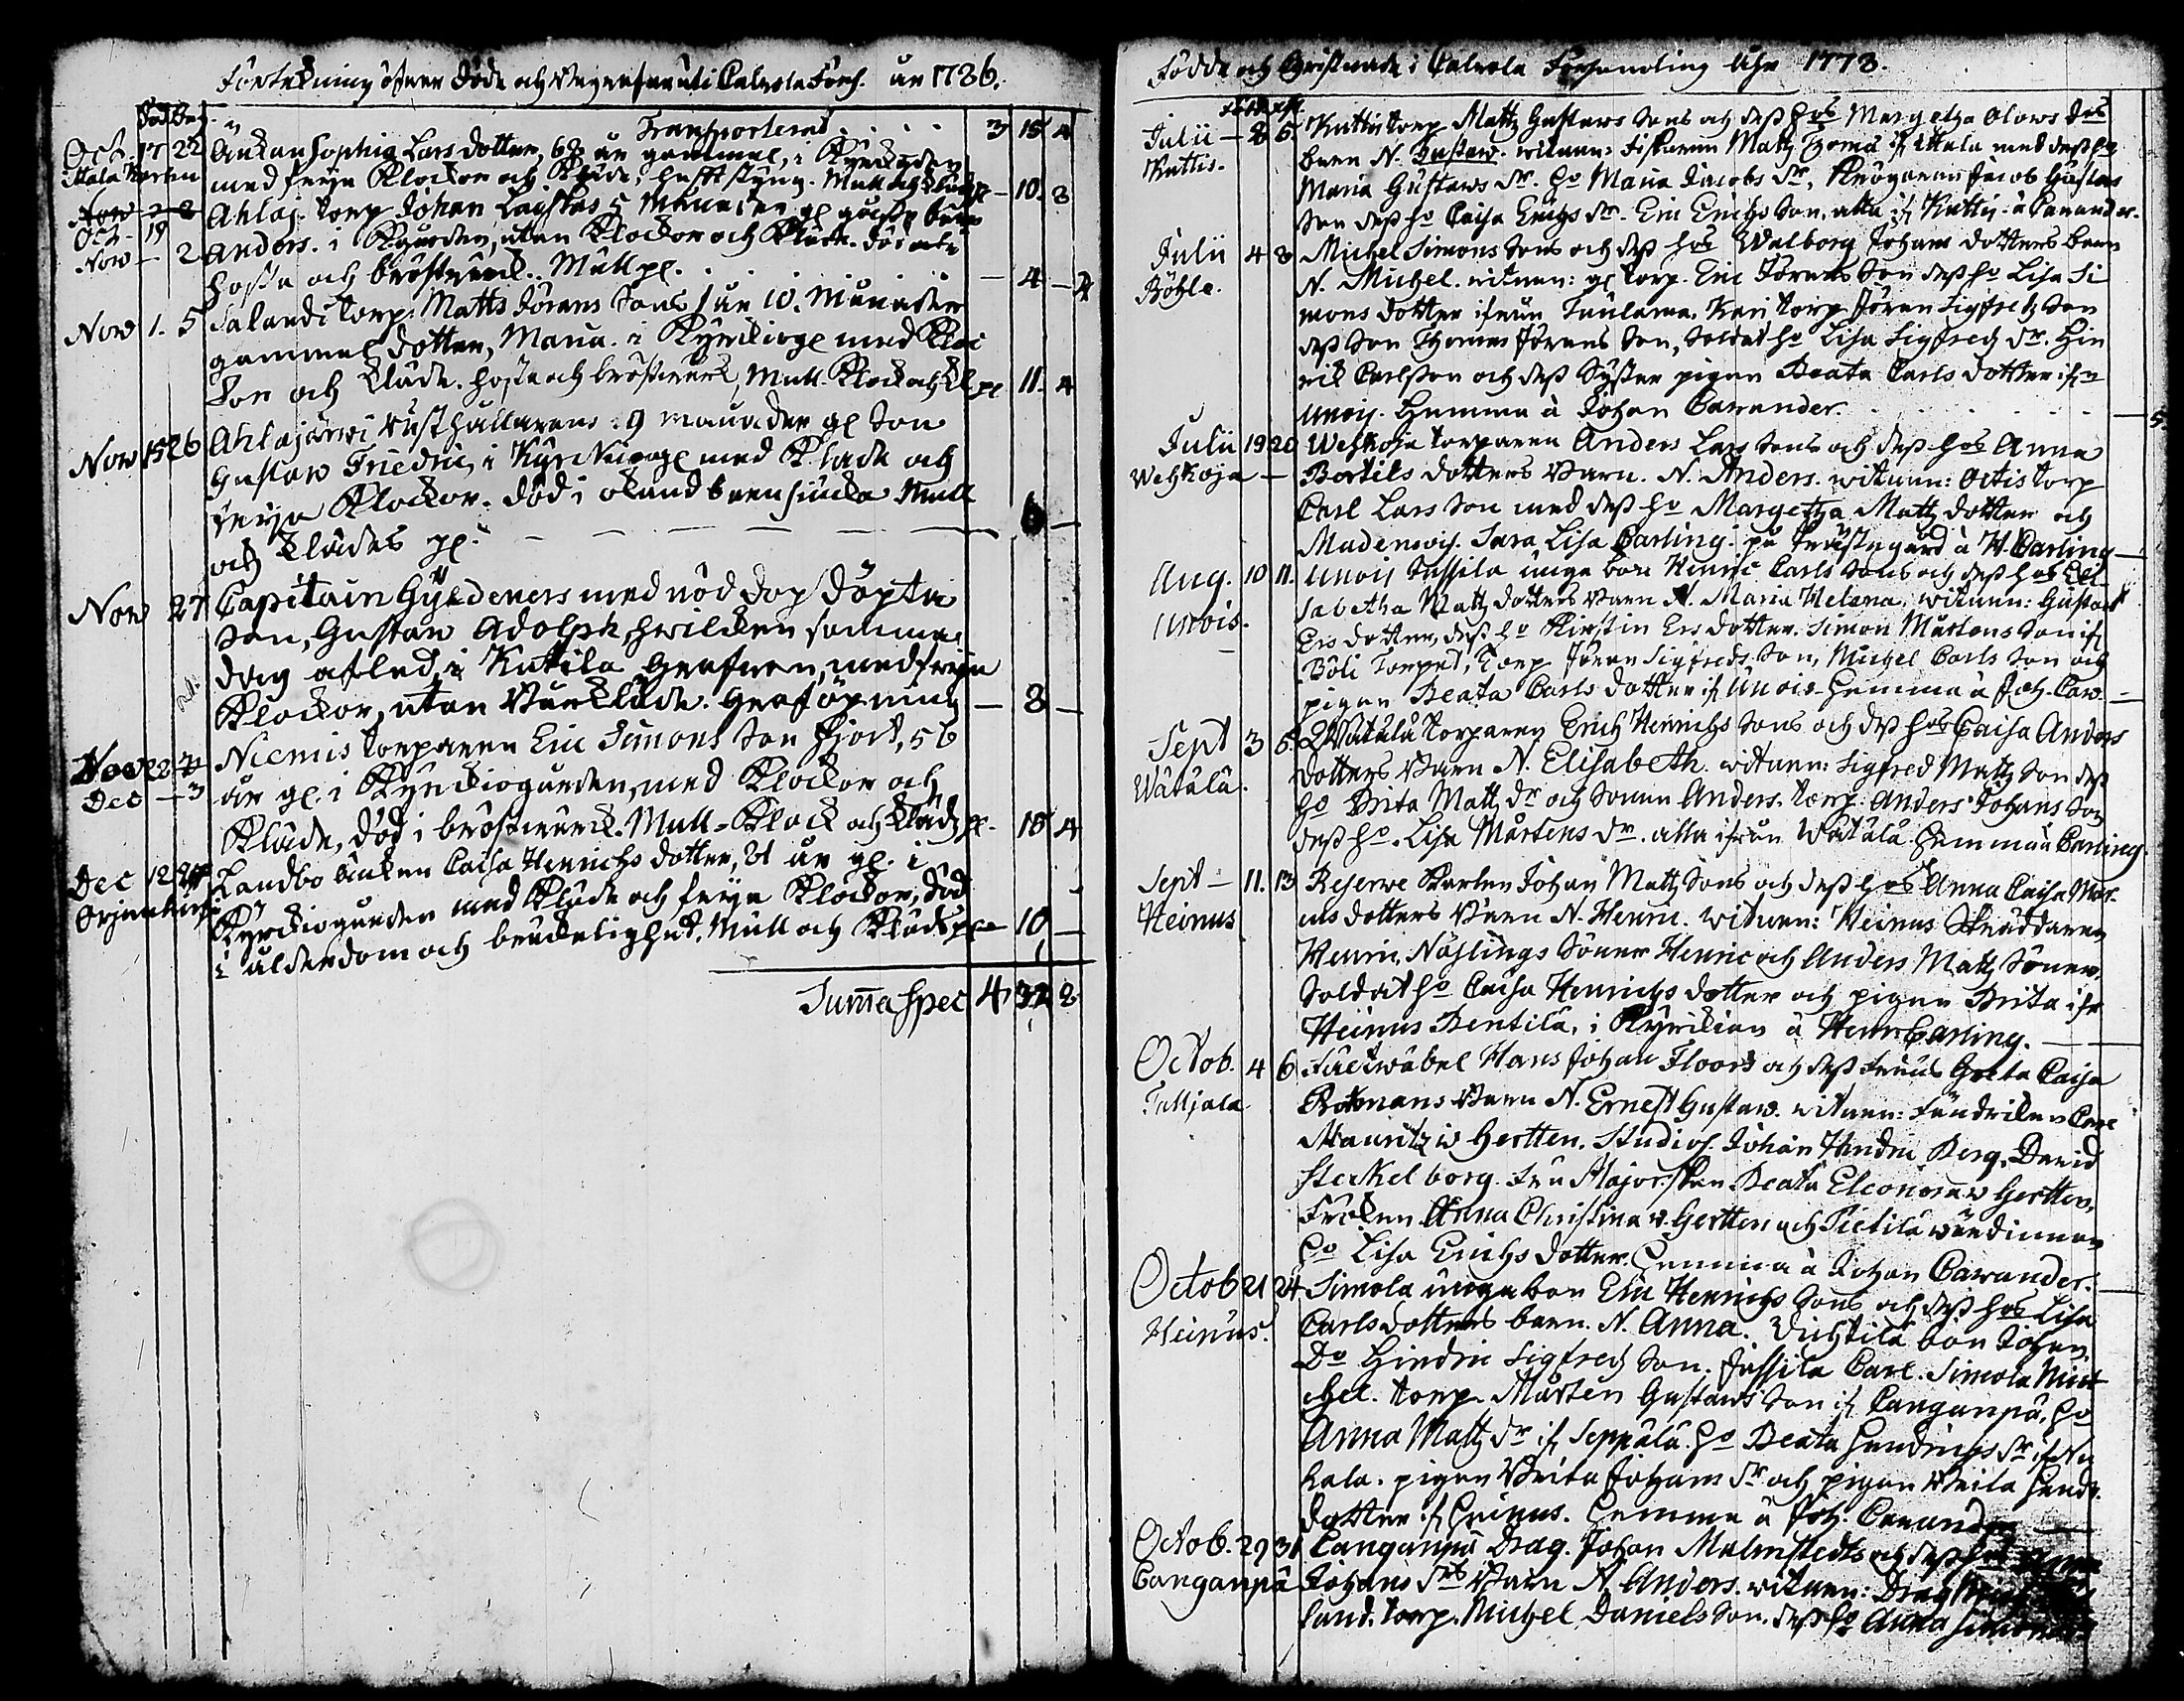 Förtekning öfwer Döde och Begrafne uti Calvola Förs. år 1786.
Död Beg.
Transporterat . . . . 3 15 4
Oct. 17 22 Änkan Sophia Lars dotter, 68 år gammal, i Kyrkiogården
Ittala
med frija Klockor och Kläde, styng. Mull och Klädes pl - 10. 8
Ahlaj. torp. Johan 5 Månader gl
Oct - 19
Now - 2 Anders. i Kgården, utan Klockor och Kläde. död af
hosta och bröstwerk. Mull pl. . . . . - 4 -
Now 1. 5 Salandi torp. Matts Jörans Sons 1 år 10. Månader
gammal dotter, Maria. i Kyrckiogl med Kloc
kor och Kläde. hosta och bröstwerk, Mull- Klock och Kl pl 11. 4
Now 15 26 Ahlajärwi Rusthållarens 9 månader gl Son
Gustaw Friedric, i Kyrkiogl med Kläde och
frija Klockor. död i okand barnsiuka Mull
och Klädes pl. - - - - 6 -
Now 27 Capitain Gyldeners med nöddop döpta
Son, Gustaw Adolph, hwilcken samma
dag afled, i Kutila Grafwen, med frija
Klockor, utan Bårkläde. Graföpning - 8 -
Niemis torparen Eric Simons Son Hjort, 56
Dec - 3 år gl. i Kyrckiogården, med Klockor och
Kläde, död i bröstwerk. Mull-Klock och Kläd pl. 15 4
Dec 12 Landbo Änkan Caisa Henrichs dotter, 81 år gl. i
Kyrckiogården med Kläde och frija Klockor, död
i ålderdom och bräckelighet. Mull och Kläds pl 10 -
Summa Spec 4 32 2
Födde och Christnade i Calvola Församling Åhr 1773.
Julii - 2 5 Kuttis torp. Mattz Gustaws Sons och dess hos Margetha Olows drs
Kuttis. barn N. Gustaw. witnen: Mattz Thoma if Ittala med dess ho
Maria Gustaws dr. ho Maria Jacobs dr, Jacob Gustaws
Son dess ho Caisa Erichs dr. Eric Erichs Son. alla if Kuttis à Cawander.
Julii 4 8 Michel Simons Sons och dess hos Walborg Johans dotters barn
Böhle. N. Michel. witnen: gl torp. Eric Jörans Son dess ho Lisa Si
mons dotter ifrån Taulama. torp Jöran Sigfredz Son
dess Son Thomas Jörans Son, Soldat ho Lisa Sigfredz dr. Hin
rik Carlsson och dess Syster pigan Beata Carls dotter ifr
Unois. Hemma à Johan Cawander. . . . . - 5
Julii 19 20 Wehkoja torparen Anders Lars Sons och dess hos Anna
Wehkoja - Bertils dotters Barn. N. Anders. witnen: torp
Carl Lars Son med dess ho Margetha Mattz dotter och
Sara Lisa Carling. på Prästegård à H. Carling -
Aug. 10 11. Unois Jussila unga bon Henric Carls Sons och dess hos Eli
Unois. sabetha Mattz dotters Barn N. Maria Helena, witnen: Gustaw
Ers dotter, dess ho Kirstin Ers dotter. Simon Mårtens Son if
Böli Torpet, Torp Jöran Sigfreds Son, Michel Carls Son och
pigan Beata Carls dotter if Unois- Hemma à Joh. Caw. -
Sept 3 5. Wätälä torparen Erich Henrichs Sons och dess hos Caisa Anders
Wätälä. dotters Barn N. Elisabeth. witnen: Sigfred Mattz Son dess
ho Brita Mattz dr och Sonen Anders. torp. Anders Johans Son
dess ho. Lisa Mårtens dr. alla ifrån Wätälä Hemma à Carling.
Sept - 11. 13 Reserwe Karlen Johan Mattz Sons och dess hos Anna Caisa Mar-
Heinus cus dotters Barn N. Henric. witnen: Heinus Skräddaren
Henric Näslings Söner Henric och Anders Mattz Söner.
Soldat ho Caisa Henrichs dotter och pigan Brita ifr
Heinus Bentilä, i Kyrckian à Henr Carling. -
Octob. 4 6 Fältwäbel Hans Johan Floors och dess Fruus Greta Caisa
Talljala Rotmans Barn N. Ernest Gustaw. witnen: Fändricken Carl
Mauritz v Gertten. Studios. Johan Hendric Berg, David
Steckelborg. Fru Majorskan Beata Eleonora v Gertten,
Fröken Anna Christina v. Gertten och Pietilä wärdinnan
ho Lisa Erichs dotter. Hemma à Johan Cawander.
Octob 21 24 Simola unga bon Eric Henrichs Sons och dess hos Lisa
Heinus. Carls dotters barn. N. Anna. bon Johan,
Do Hindric Sigfredz Son. Jussila Carl. Simola Mic
hel. torp. Mårten Gustaws Son if Canganpä, ho
Anna Mattz dr if Seppälä. ho Beata Hendrichs dr if Nu
hala. pigan Brita Johans dr och pigan Brita Hendr.
dotter if Heinus. Hemma à Joh. Cawander -
Octob. 29 31 Canganpä Drag. Johan Malmstedts och dess hos
Canganpä Johans drs Barn N. Anders. witnen: Drag
Torp. Michel Daniels Son. dess ho Anna Simons